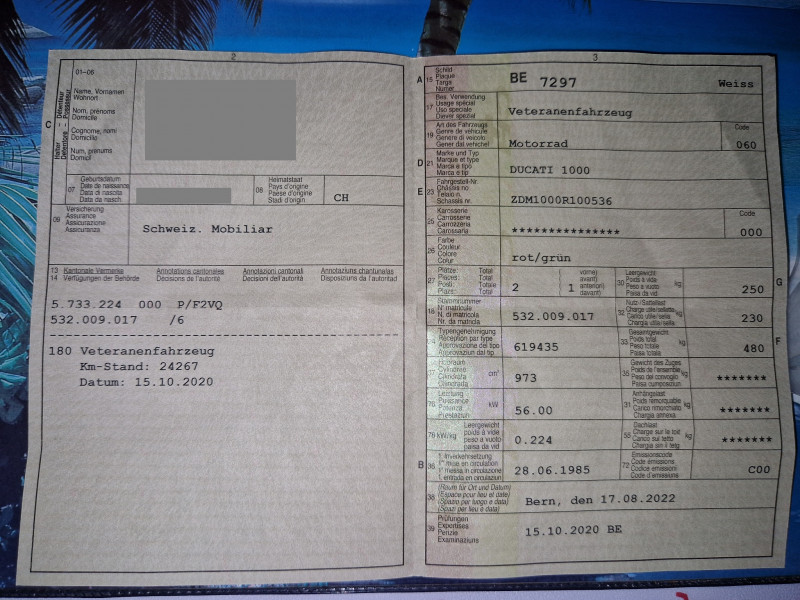 2
01-06
Halter Détenteur
Detentore Possessur
C
Name, Vornamen
Wohnort
Nom, prénoms
Domicile
Cognome, nomi
Domicilio
Num, prenums
Domicil
07
Geburtsdatum
Date de naissance
Data di nascita
Data da nasch.
08
Heimatstaat
Pays d'origine
Paese d'origine
Stadi d'origin
CH
09
Versicherung
Assurance
Assicurazione
Assicuranza
Schweiz. Mobiliar
13 Kantonale Vermerke Annotations cantonales Annotazioni cantonali Annotaziuns chantunalas
14 Verfügungen der Behörde Décisions de l'autorité Decisioni dell'autorità Disposiziuns da l'autoritad
5.733.224 000 P/F2VQ
532.009.017 /6
180 Veteranenfahrzeug
Km-Stand: 24267
Datum: 15.10.2020
3
A 15
Schild
Plaque
Targa
Numer
BE 7297 Weiss
17
Bes. Verwendung
Usage spécial
Uso speciale
Diever spezial
Veteranenfahrzeug
19
Art des Fahrzeugs
Genre de véhicule
Genere di veicolo
Gener dal vehichel
Motorrad
Code
060
D 21
Marke und Typ
Marque et type
Marca e tipo
Marca e tip
DUCATI 1000
E 23
Fahrgestell-Nr.
Châssis no.
Telaio n.
Schassis nr.
ZDM1000R100536
25
Karosserie
Carrosserie
Carrozzeria
Carossaria
***************
Code
000
26
Farbe
Couleur
Colore
Colur
rot/grün
27
Plätze: Total
Places: Total
Posti: Totale
Plazs: Total
2
( vorne)
( 1 anteriori)
davant)
30
Leergewicht
Poids à vide
Peso a vuoto
Paisa da vid
kg
250
G
18
Stammnummer
N. matricule
N. di matricola
Nr. da matricla
532.009.017
32
Nutz-/Sattellast
Charge utile/sellette
Carico utile/sella
Chargia utila/sella
kg
230
24
Typengenehmigung
Réception par type
Approvazione del tipo
Approvaziun dal tip
619435
33
Gesamtgewicht
Poids total
Peso totale
Paisa totala
kg
480
F
37
Hubraum
Cylindrée
Cilindrata
Cilindrada
cm³
973
35
Gewicht des Zuges
Poids de l'ensemble
Peso del convoglio
Paisa cumposiziun
kg
*******
76
Leistung
Puissance
Potenza
Prestaziun
kW
56.00
31
Anhängelast
Poids remorquable
Carico rimorchiato
Chargia annexa
kg
*******
78 kW/kg
Leergewicht
poids à vide
peso a vuoto
paisa da vid
0.224
55
Dachlast
Charge sur le toit
Carico sul tetto
Chargia sin il tetg
kg
*******
B 36
1. Inverkehrsetzung
1re mise en circulation
1a messa in circolazione
1. entrada en circulaziun
28.06.1985
72
Emissionscode
Code émissions
Codice emissioni
Code d'emissiuns
C00
38
(Raum für Ort und Datum)
(Espace pour lieu et date)
(Spazio per luogo e data)
(Spazi per lieu e data)
Bern, den 17.08.2022
39
Prüfungen
Expertises
Perizie
Examinaziuns
15.10.2020 BE